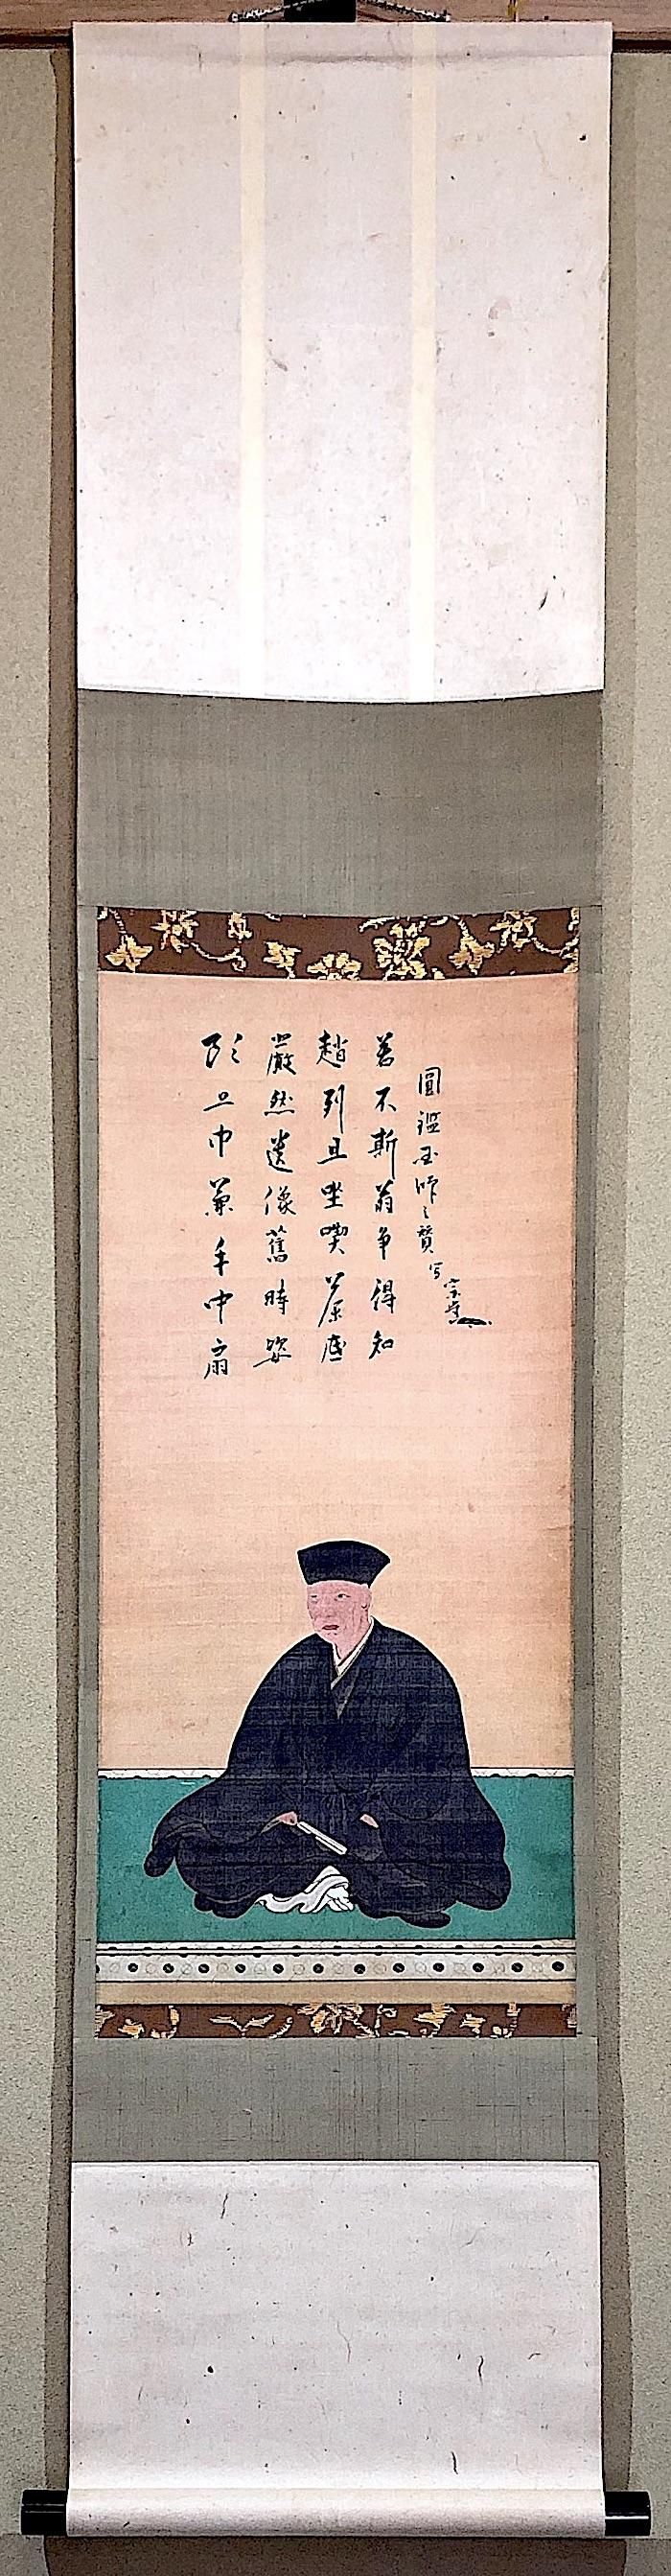 頭上巾兼手中扇
嚴然遺像舊時姿
趙州且坐喫茶底
若不斯翁争得知
圓鑑国師之賛 写 宗